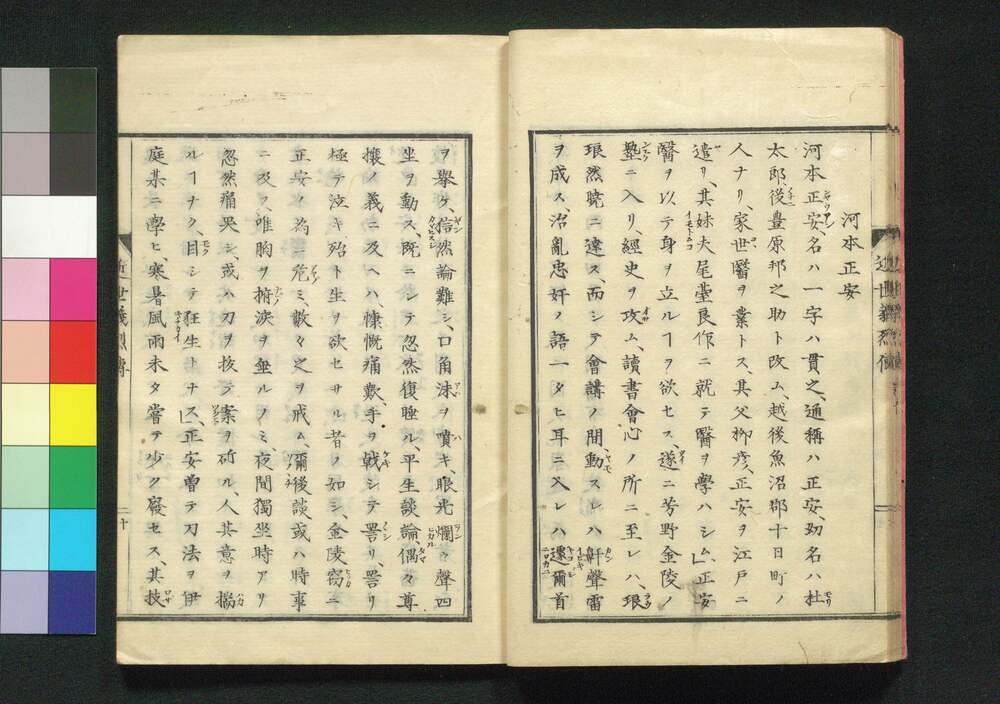 河本正安
河本正安、名ハ一字ハ貫之、通稱ハ正安、幼名ハ杜
太郎後豊原邦之助ト改ム、越後魚沼郡十日町ノ
人ナリ、家世醫ヲ業トス、其父柳彦、正安ヲ江戸ニ
遣リ、其妹夫尾臺良作ニ就テ醫ヲ學ハシム、正安
醫ヲ以テ身ヲ立ルヿヲ欲セス、遂ニ芳野金陵ノ
塾ニ入リ、經史ヲ攻ム、讀書會心ノ所ニ至レハ、琅
琅然曉ニ達ス、而シテ會講ノ間、動スレハ鼾聲雷
ヲ成ス、治亂忠奸ノ語一タヒ耳ニ入レハ遽爾首
ヲ擧ケ、信然論難シ、口角沫ヲ噴キ、眼光爛々聲四
坐ヲ動ス、既ニシテ忽然復睡ル、平生談論、偶々尊
攘ノ義ニ及ヘハ、慷慨痛歎、手ヲ戟シテ詈リ、詈リ
極テ泣キ殆ト生ヲ欲セサル者ノ如シ、金陵窃ニ
正安ノ為ニ危ミ、數々之ヲ戒ム、爾後談或ハ時事
ニ及フ、唯胸ヲ拊淚ヲ垂ルノミ、夜間獨坐時アリ
忽然痛哭シ、或ハ刀ヲ拔テ案ヲ斫ル、人其意ヲ揣
ルヿナク、目シテ狂生トナス、正安曽テ刀法ヲ伊
庭某ニ學ヒ、寒暑風雨未タ嘗テ少ク廢セス、其技
近世義烈傳
近世義烈傳
二十